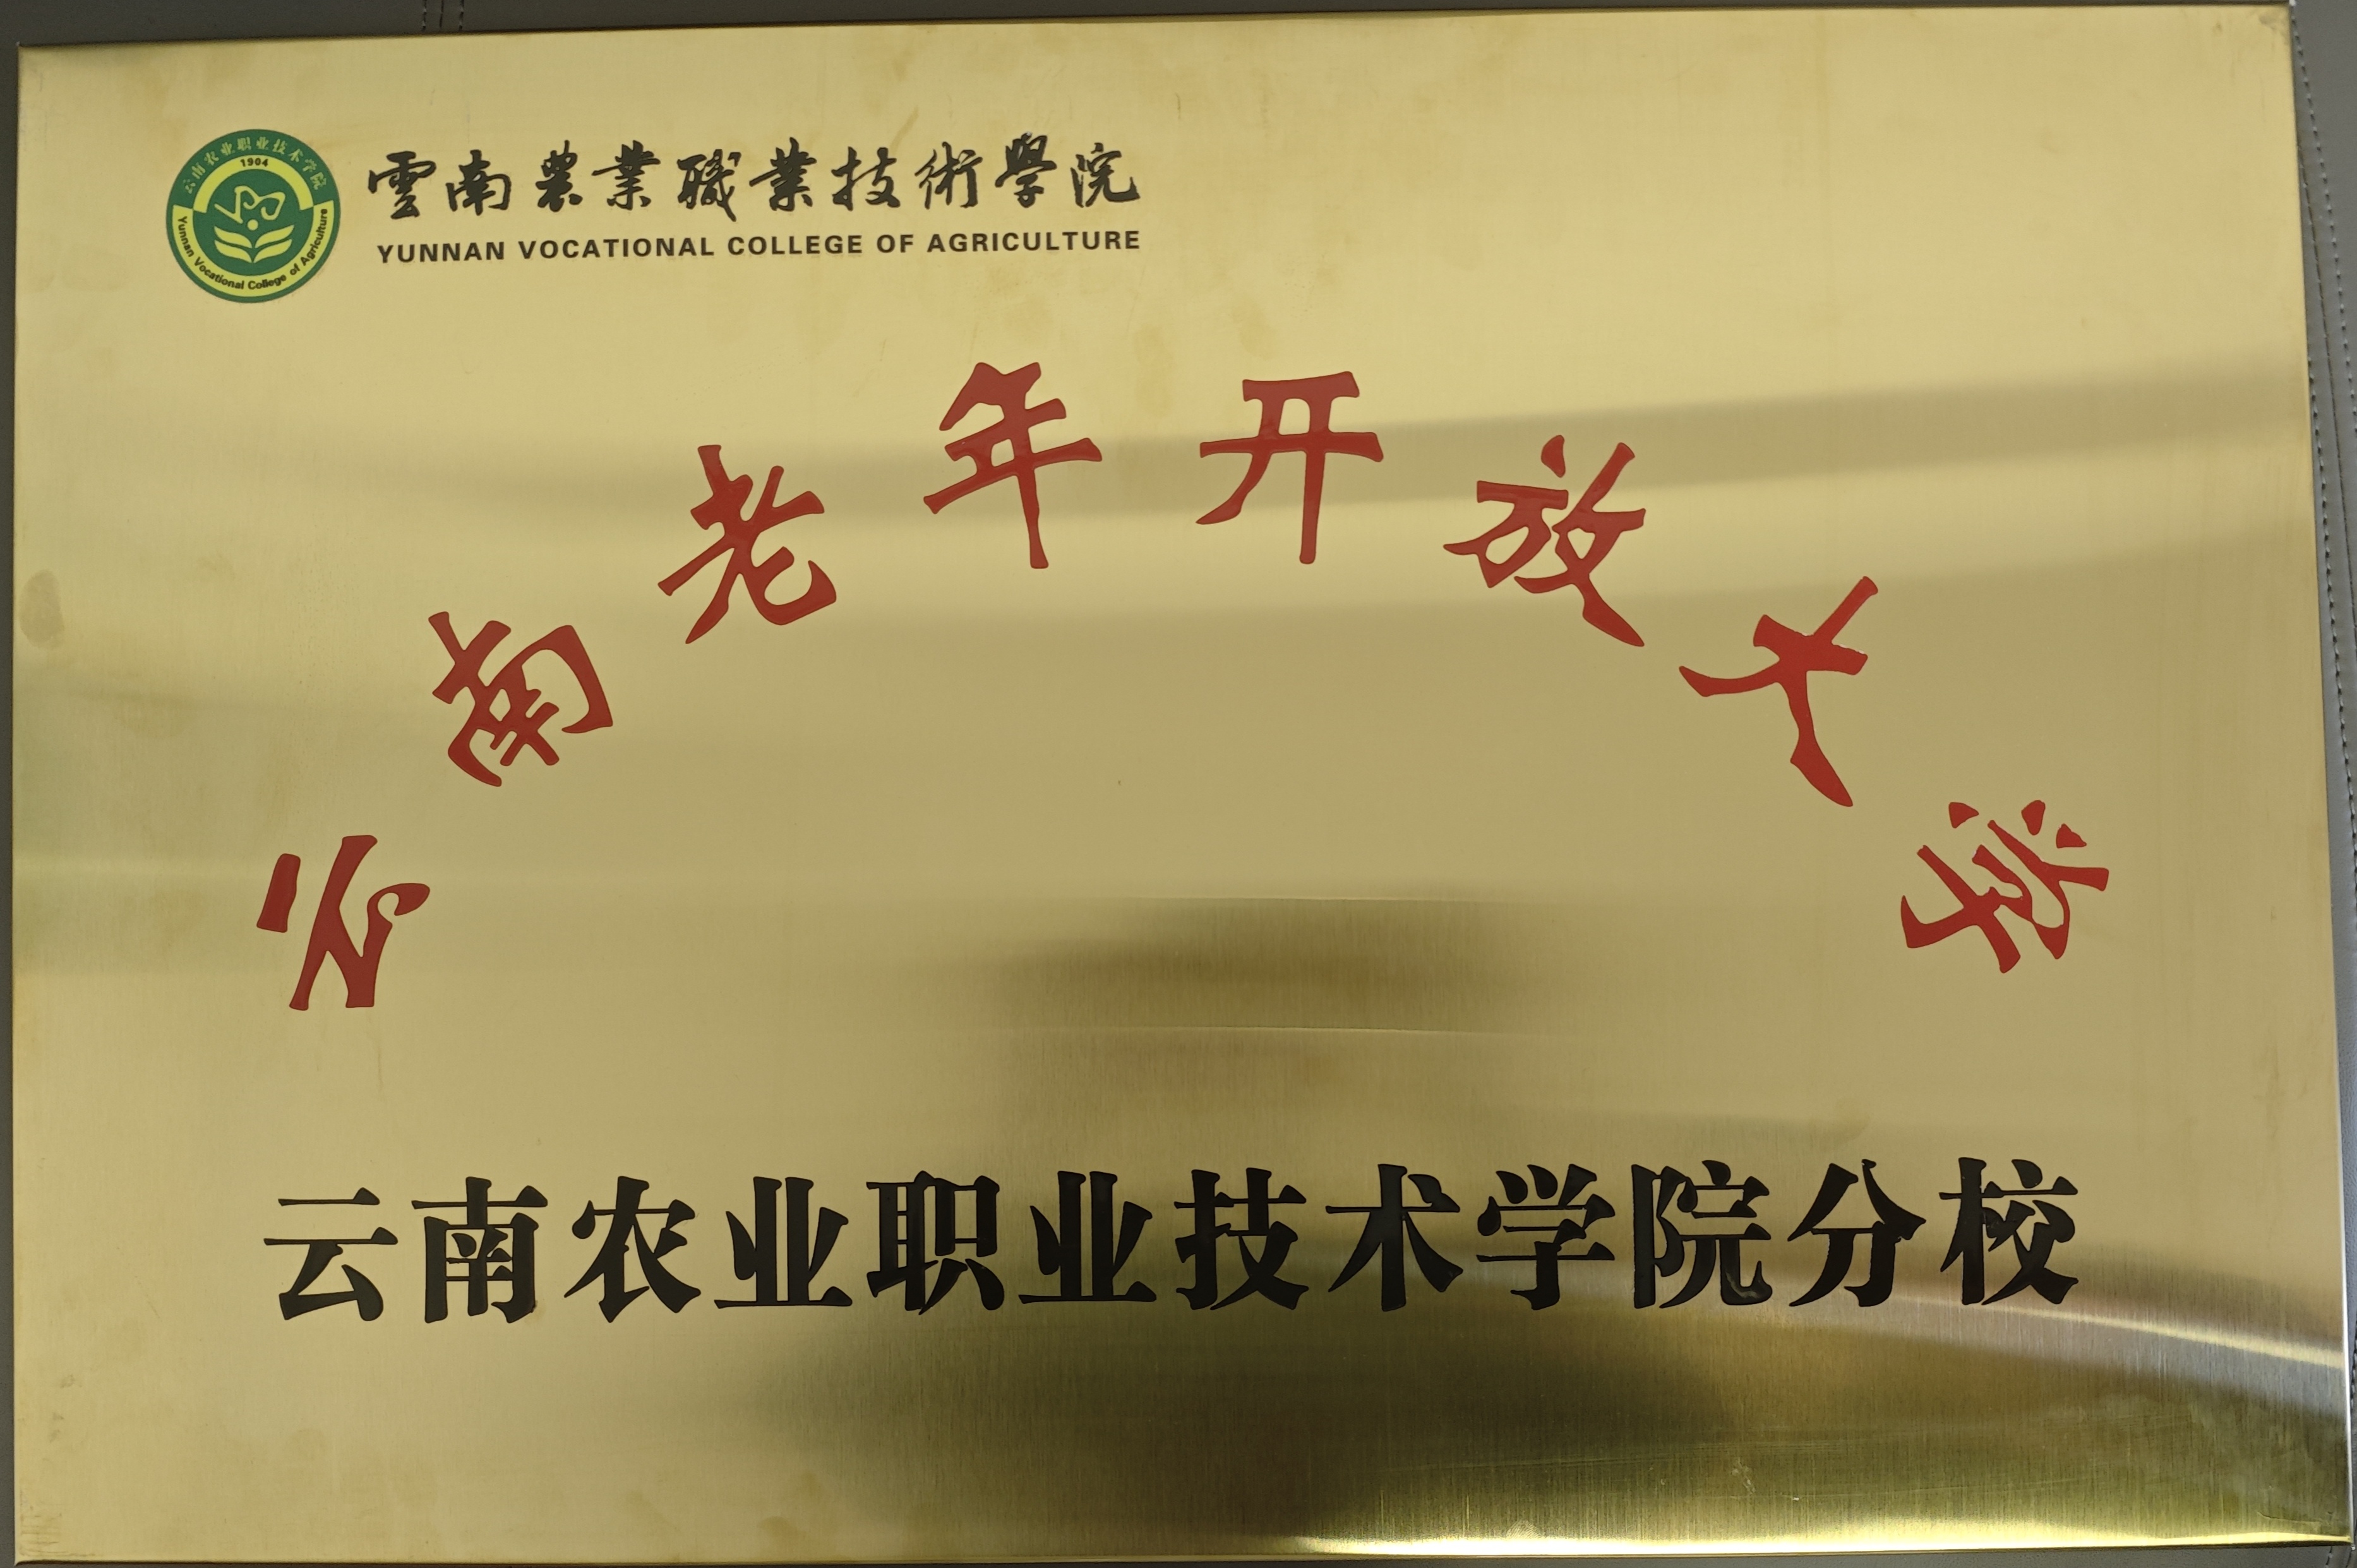 云南农业职业技术学院
1904
Yunnan Vocational College of Agriculture
雲南農業職業技術學院
YUNNAN VOCATIONAL COLLEGE OF AGRICULTURE
云南老年开放大学
云南农业职业技术学院分校